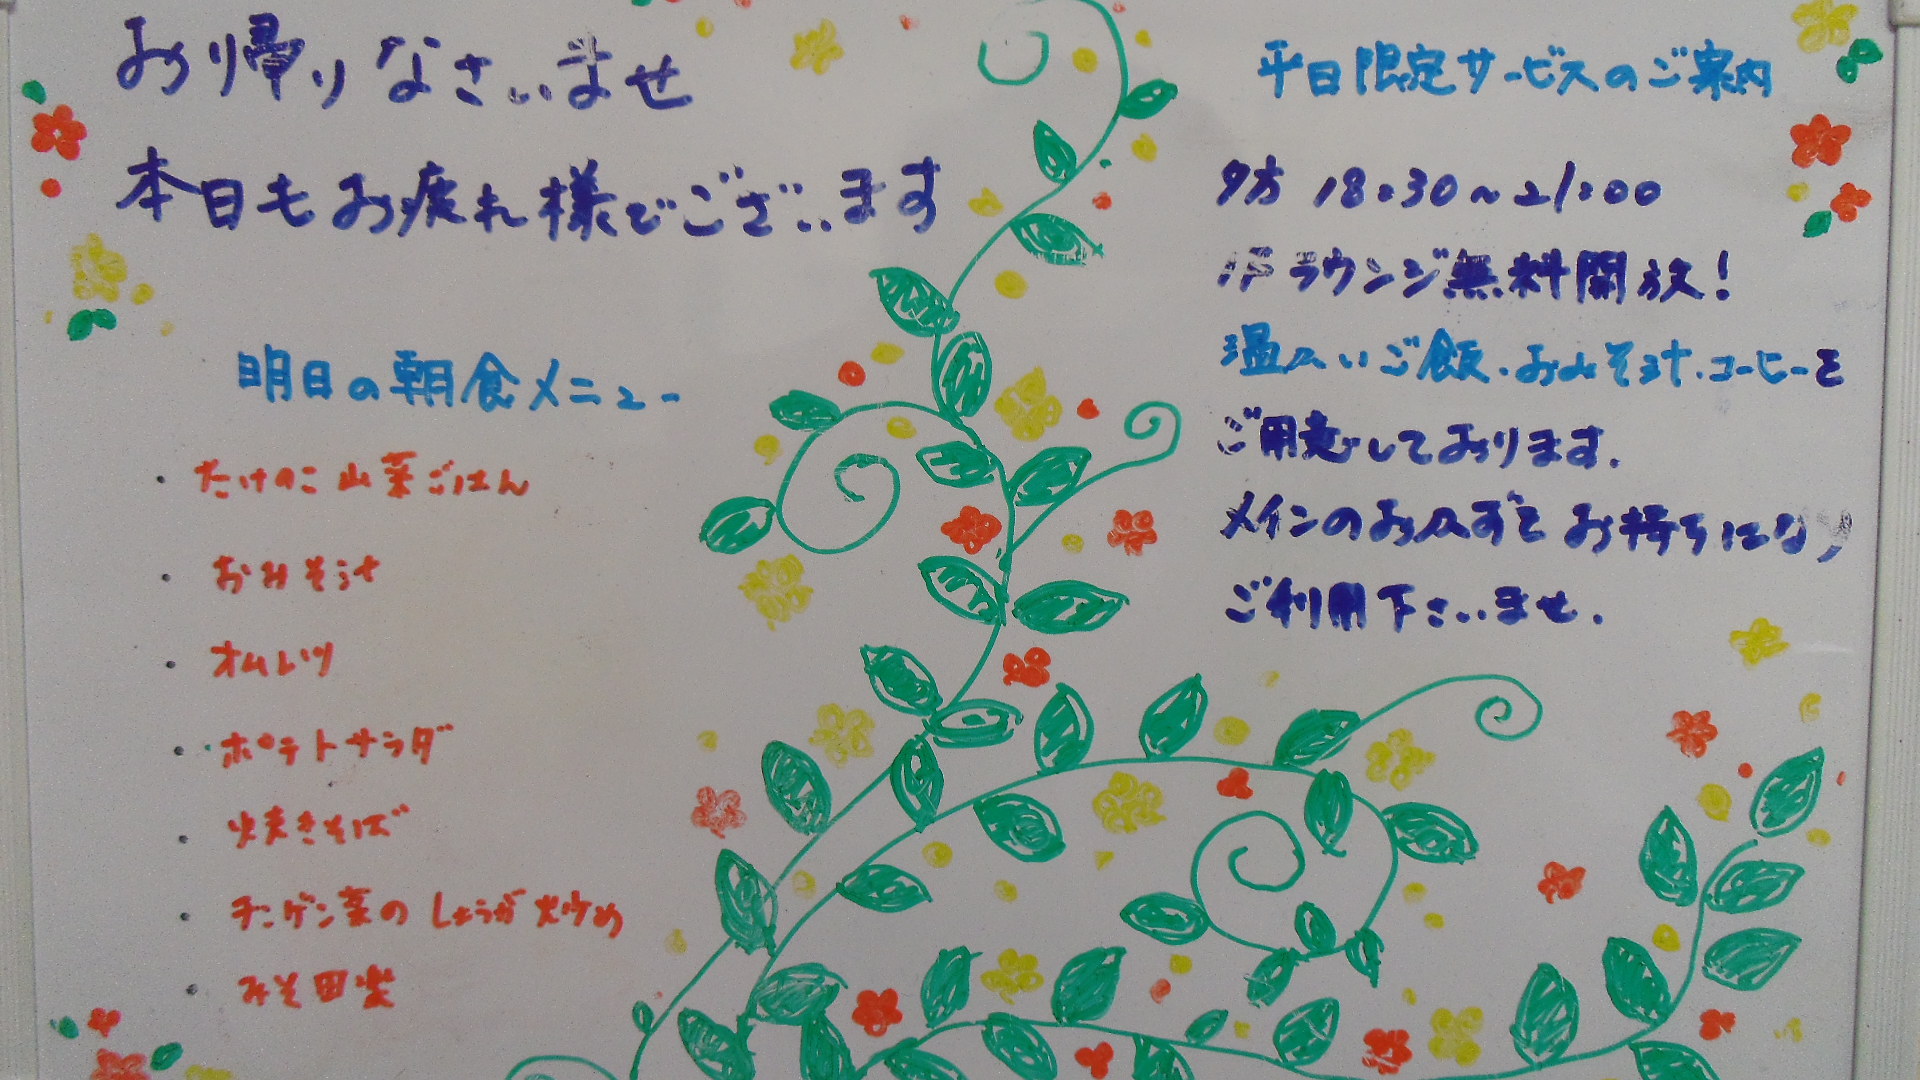 お帰りなさいませ
本日もお疲れ様でございます
明日の朝食メニュー
・たけのこ山菜ごはん
・おみそ汁
・オムレツ
・ポテトサラダ
・焼きそば
・チンゲン菜のしょうが炒め
・みそ田楽
平日限定サービスのご案内
夕方 18:30~21:00
1Fラウンジ無料開放!
温かいご飯・おみそ汁・コーヒーを
ご用意しております.
メインのおかずをお持ちになり
ご利用下さいませ.